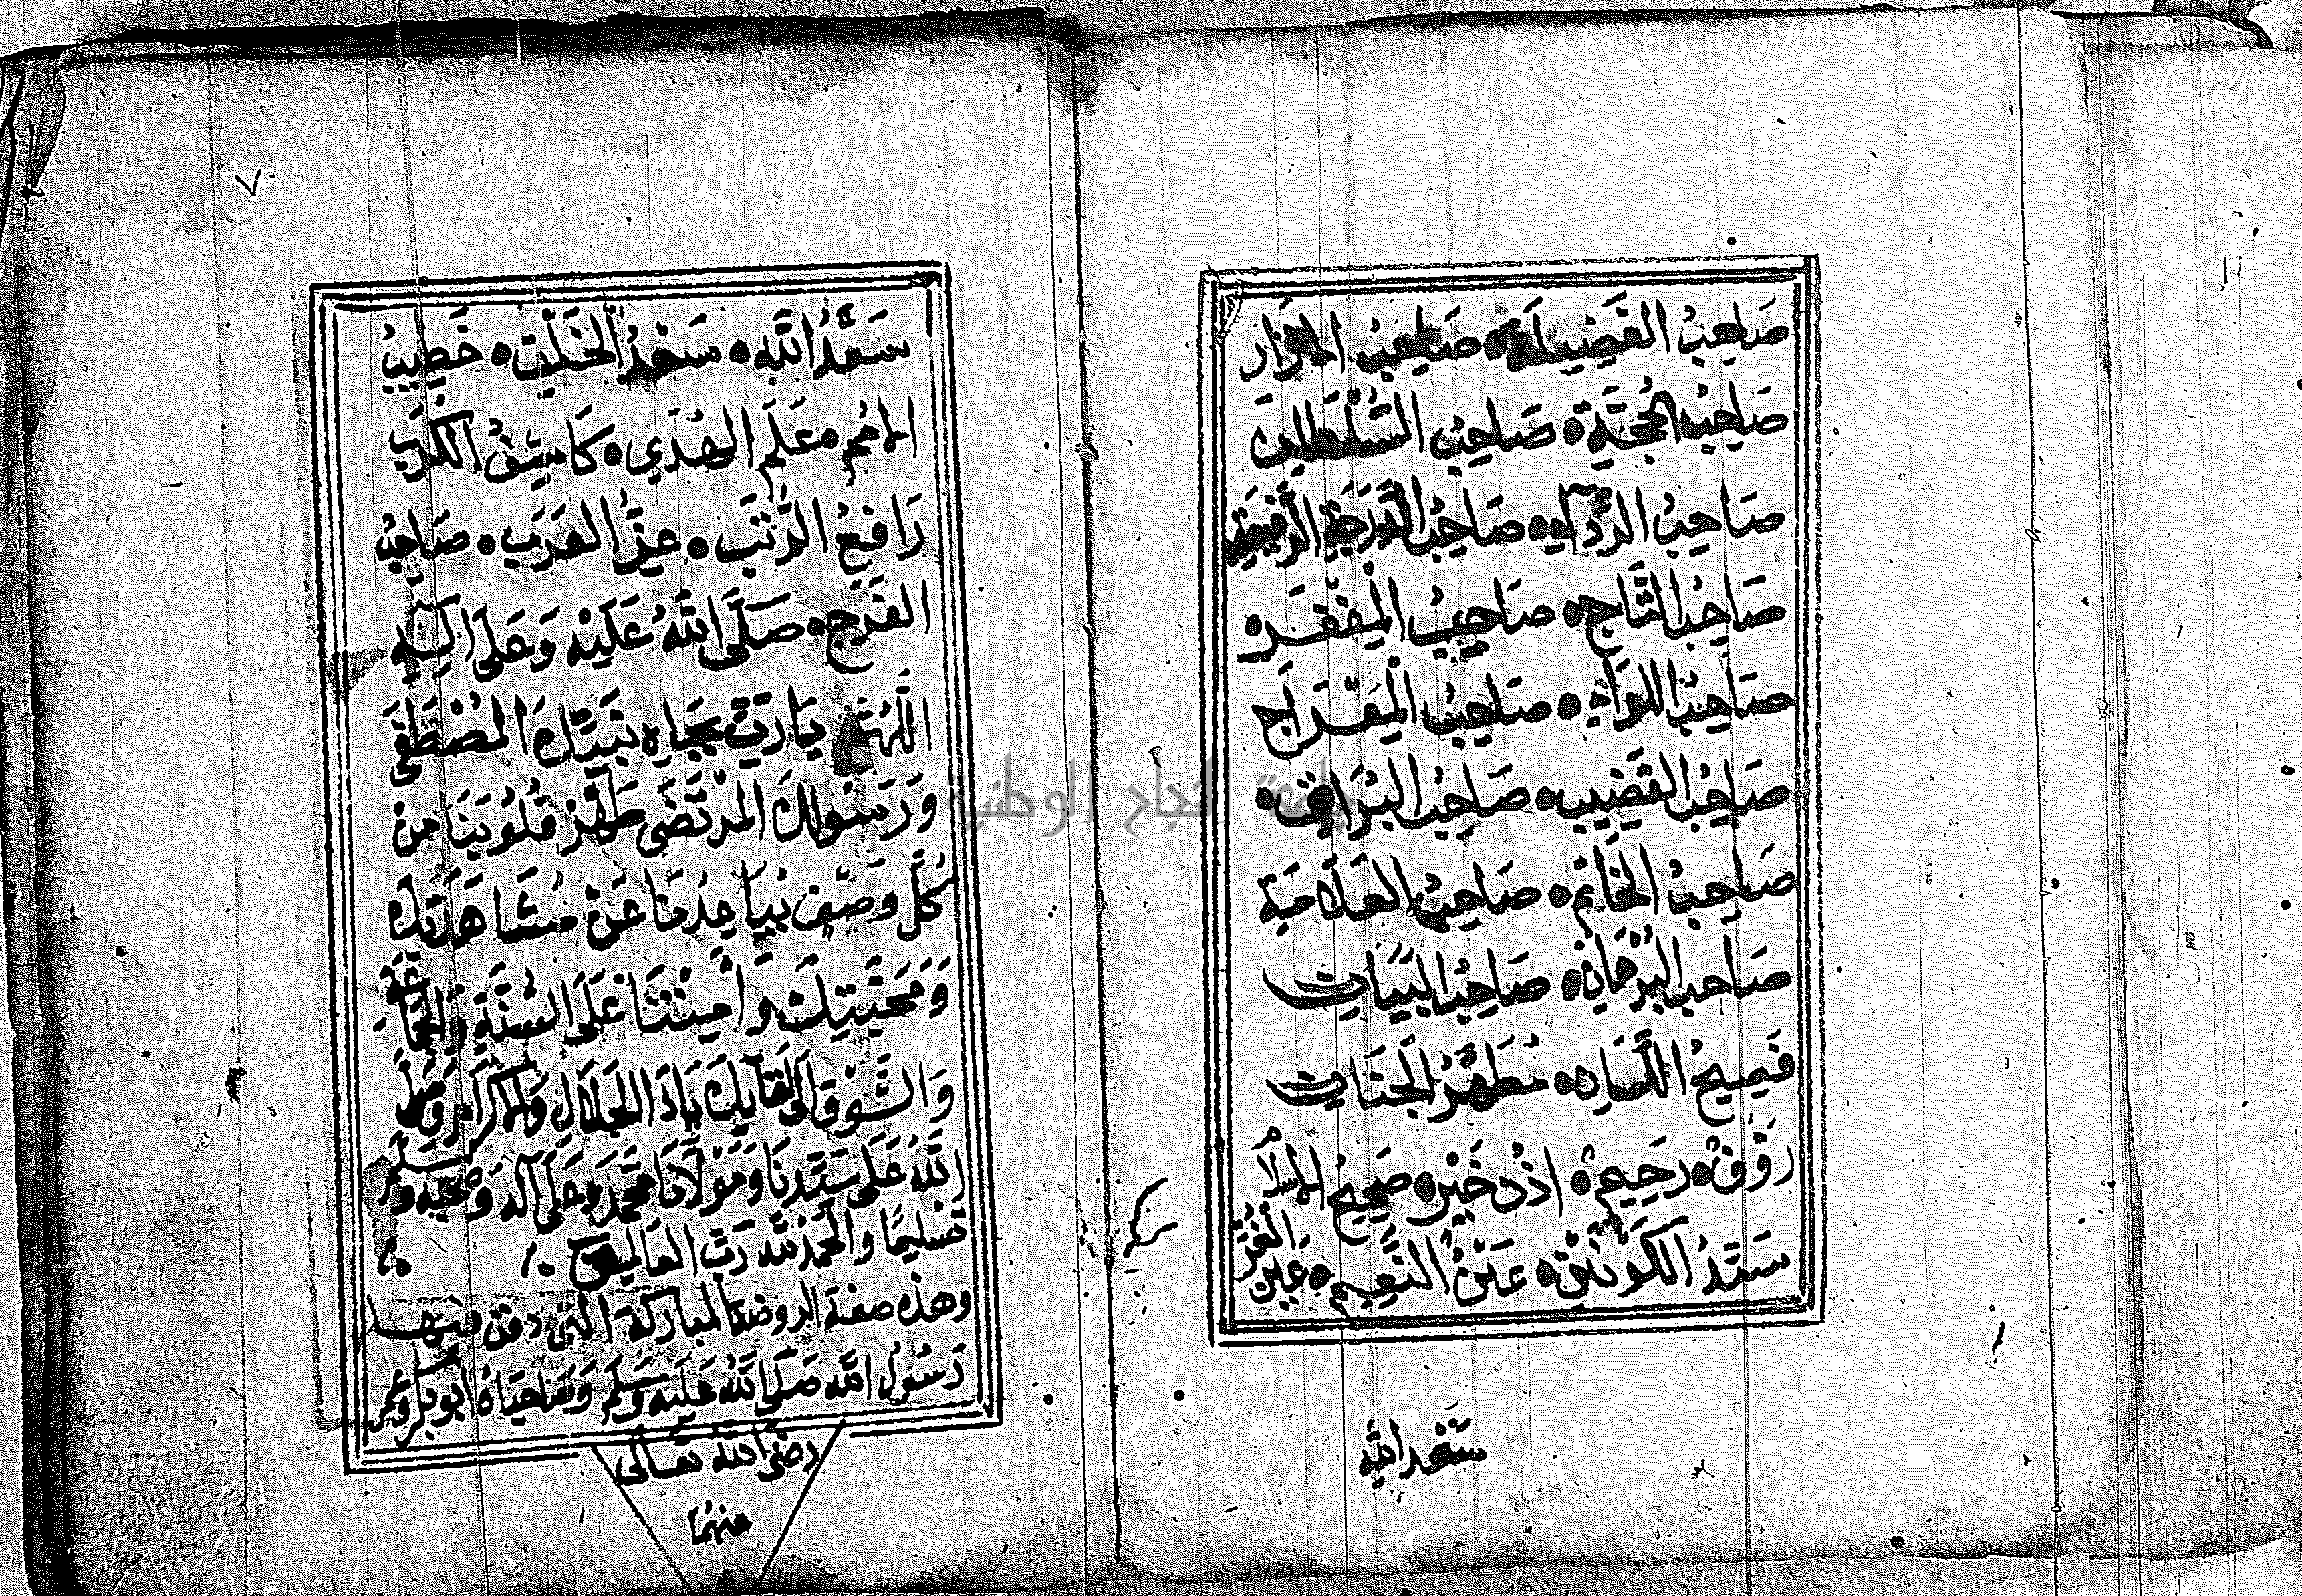 صَاحِبُ الفَضِيلَةِ صَاحِبُ الازَار
صَاحِبُ الحُجَّةِ صَاحِبُ السُّلْطَانِ
صَاحِبُ الرِّدَاءِ صَاحِبُ الدَّرَجَةِ الرَّفِيعَةِ
صَاحِبُ التَّاجِ صَاحِبُ المِغْفَرِ
صَاحِبُ اللِّوَاءِ صَاحِبُ المِعْرَاجِ
صَاحِبُ القَضِيبِ صَاحِبُ البُرَاقِ
صَاحِبُ الخَاتَمِ صَاحِبُ العَلَامَةِ
صَاحِبُ البُرْهَانِ صَاحِبُ البَيَانِ
فَصِيحُ اللِّسَانِ مُطَهَّرُ الجَنَانِ
رَؤُفٌ رَحِيمٌ اذُنُ خَيْرٍ صَحِيحُ الاسْلَامِ
سَيِّدُ الكَوْنَيْنِ عَيْنُ النَّعِيمِ عَيْنُ الْغُرِّ
سَعْدُ اللهِ
٧
سَعْدُ اللَّهِ سَعْدُ الخَلْقِ خَطِيبُ
الامَمِ عَلَمُ الهُدَى كَاشِفُ الكُرَبِ
رَافِعُ الرُّتَبِ عِزُّ العَرَبِ صَاحِبُ
الفَرَجِ صَلَّى اللَّهُ عَلَيْهِ وَعَلَى الِهِ
اللَّهُمَّ يَا رَبِّ بِجَاهِ نَبِيِّكَ المُصْطَفَى
وَرَسُولِكَ المُرْتَضَى طَهِّرْ قُلُوبَنَا مِن
كُلِّ وَصْفٍ يُبَاعِدُنَا عَنْ مُشَاهَدَتِكَ
وَمَحَبَّتِكَ وَامِتْنَا عَلَى السُّنَّةِ وَالجَمَاعَةِ
وَالشَّوْقِ الَى لِقَائِكَ يَاذَا الجَلَالِ وَالاكْرَامِ وَصَلَّى
اللَّهُ عَلَى سَيِّدِنَا وَمَوْلَانَا مُحَمَّدٍ وَعَلَى آلِهِ وَصَحْبِهِ وَسَلَّمَ
تَسْلِيمًا وَالْحَمْدُ للَّهِ رَبِّ العَالَمِينَ
وهذه صفة الروضة المباركة التي دفن فيها
رَسُولُ اللَّهِ صَلَّى اللَّهُ عَلَيْهِ وَسَلَّمَ وَصَاحِبَاهُ ابُو بَكْرٍ وَعُمَر
رضى الله تعالى
عنهما
جامعة النجاح الوطنية